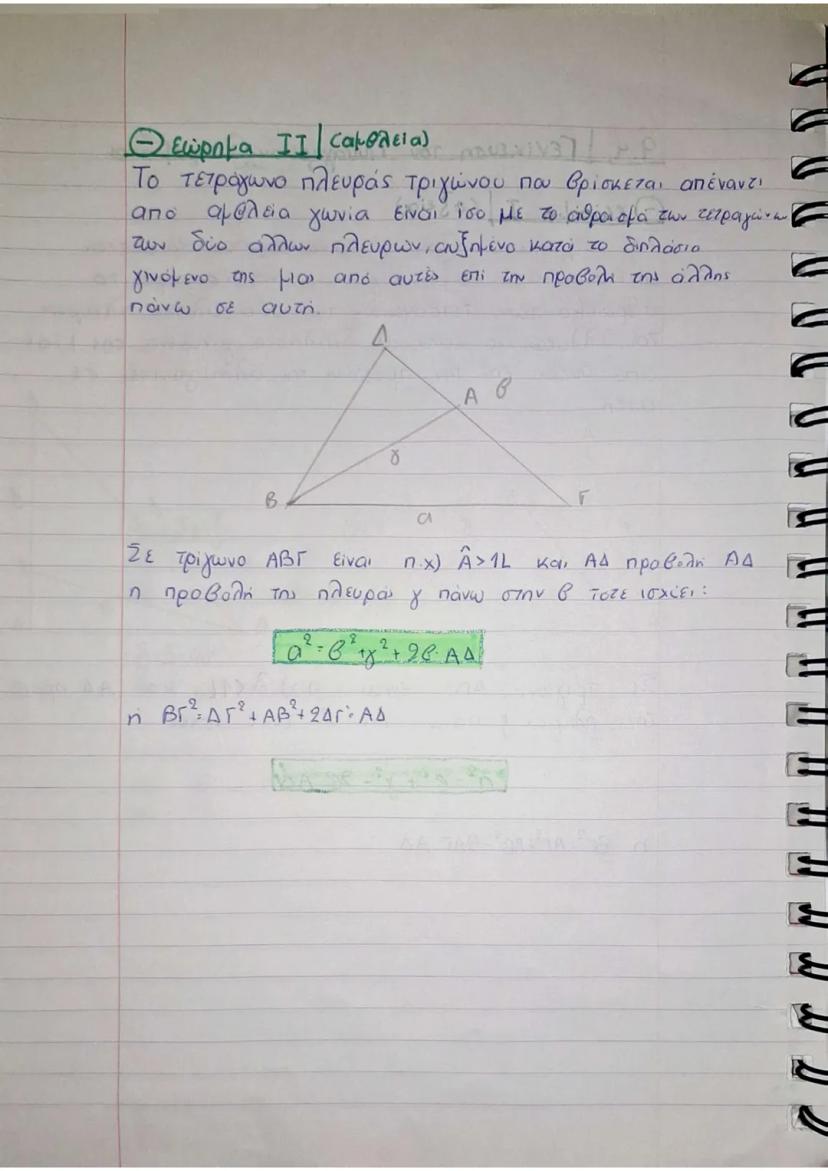 Θεώρημα II (αμβλεία)
Το τετράγωνο πλευράς τριγώνου που βρίσκεται απέναντι
από αμβλεία γωνία είναι ίσο με το άθροισμα των τετραγώνων
των δύο άλλων πλευρών, αυξημένο κατά το διπλάσιο
γινόμενο της μιας από αυτές επί την προβολή της άλλης
πάνω σε αυτή.
Δ
Α β
γ
Β Γ
α
Σε τρίγωνο ΑΒΓ είναι π.χ) Â>1L και ΑΔ προβολή ΑΔ
η προβολή της πλευράς γ πάνω στην β τότε ισχύει:
α²=β²+γ²+2β·ΑΔ
ή ΒΓ²=ΔΓ²+ΑΒ²+2ΔΓ·ΑΔ